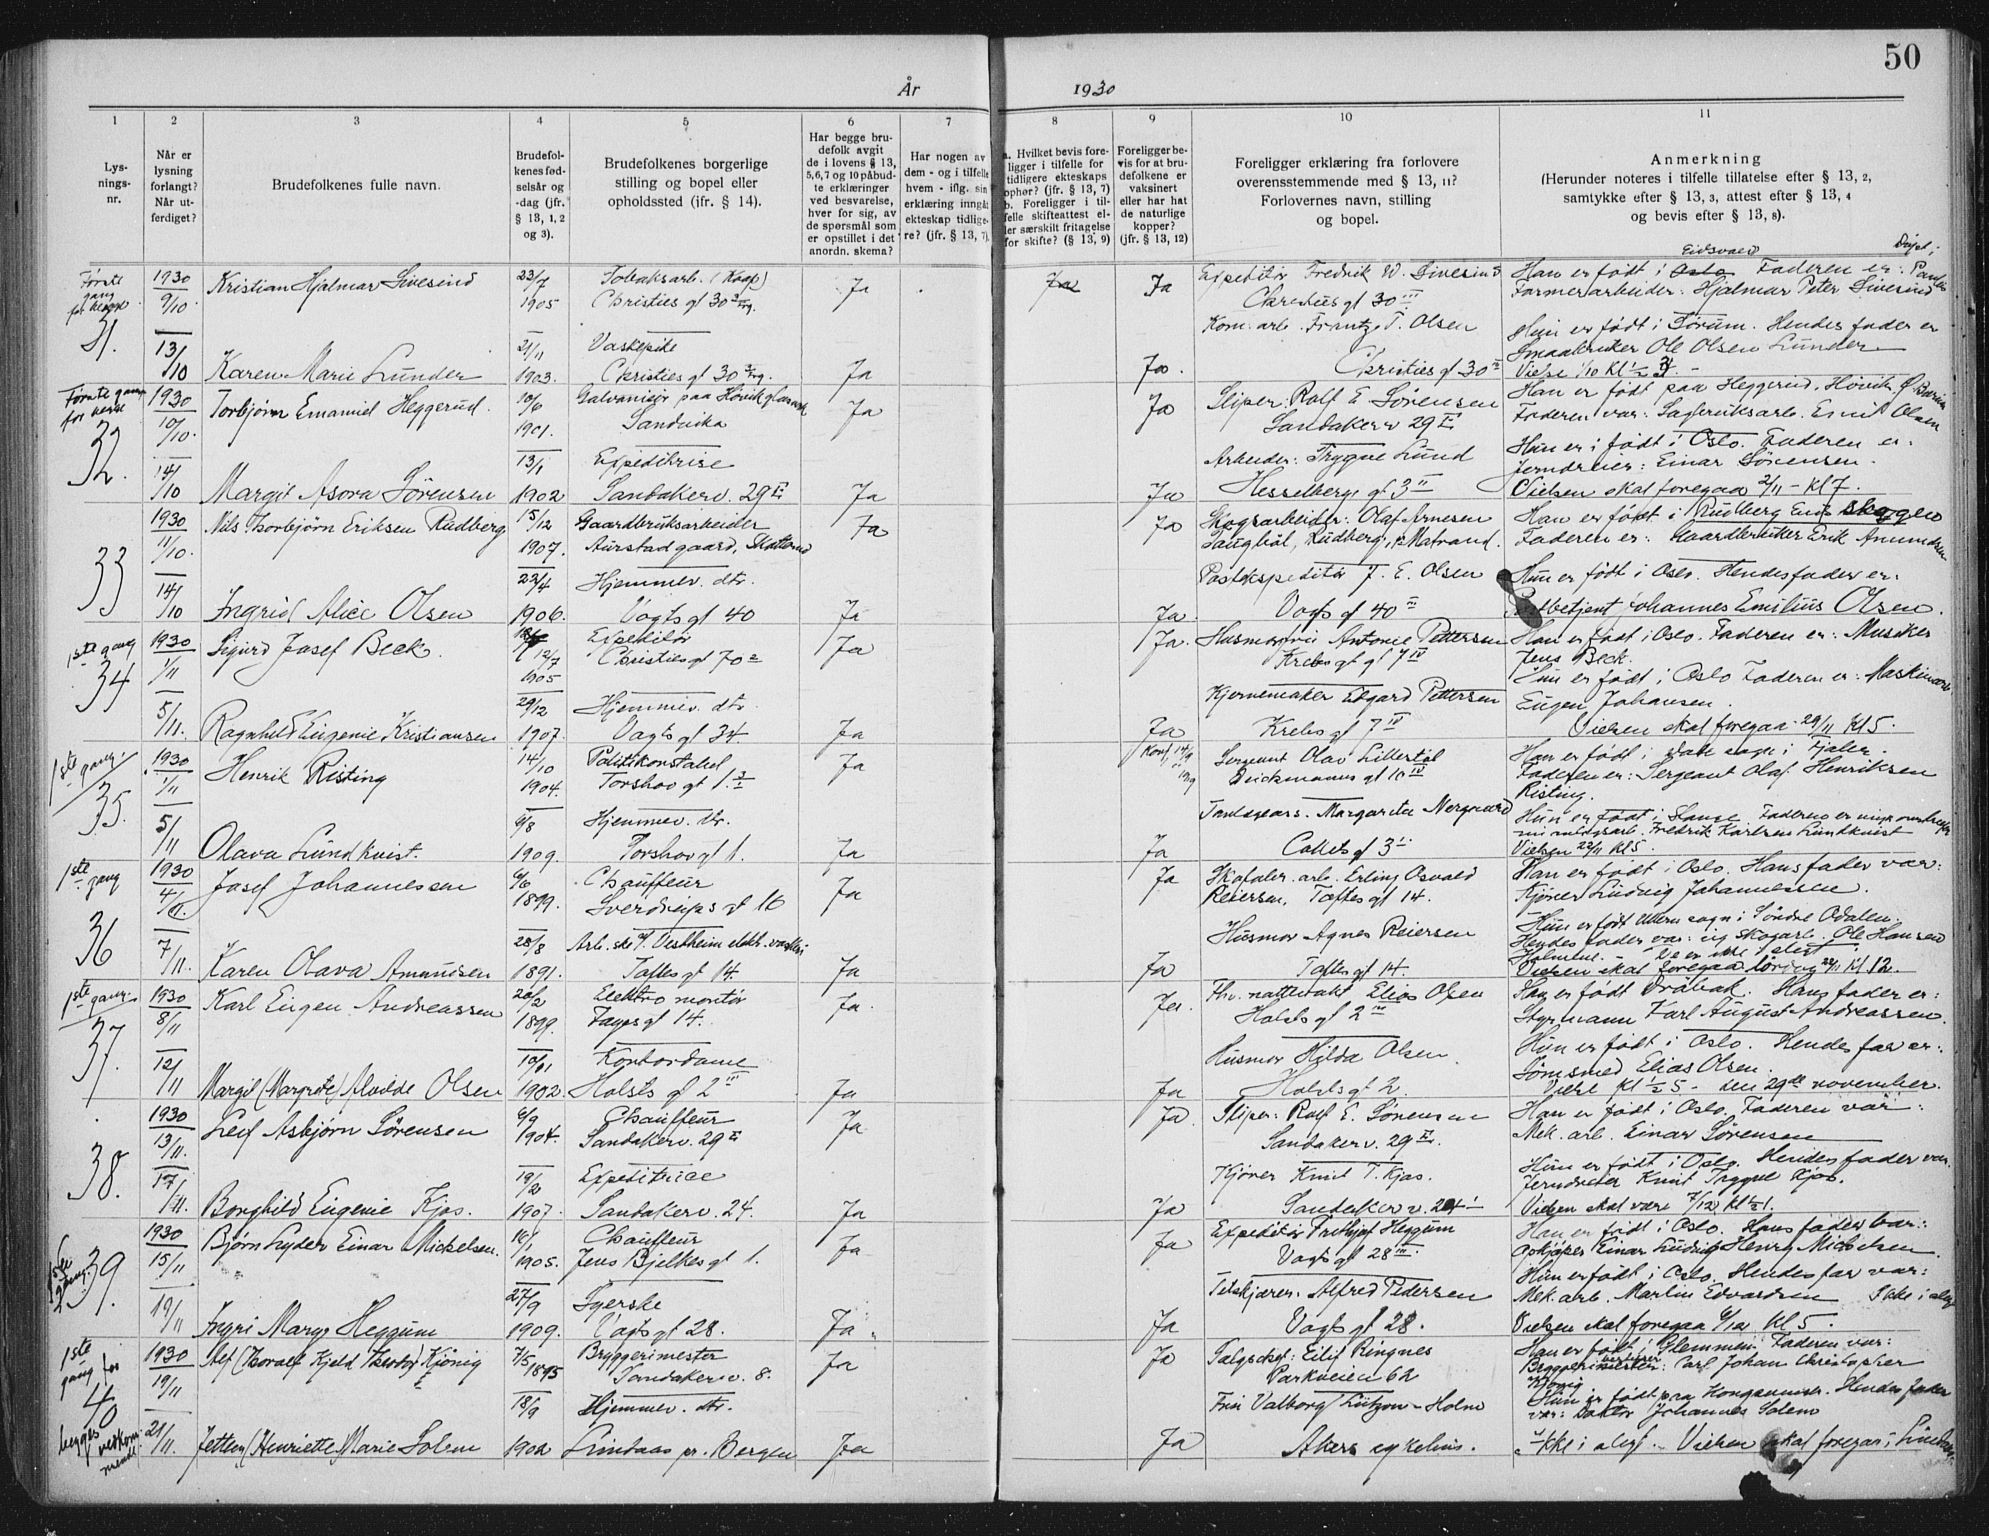 50
År 1930
1 2 3 4 5 6 7 8 9 10 11
Lys-
nings-
nr.
Når er
lysning
forlangt?
Når ut-
ferdiget?
Brudefolkenes fulle navn.
Brudefol-
kenes fød-
selsår og
-dag (jfr.
§ 13, 1, 2
og 3).
Brudefolkenes borgerlige
stilling og bopel eller
opholdssted (jfr. § 14).
Har begge bru-
defolk avgit
de i lovens § 13,
5,6,7 og 10 påbud-
te erklæringer
ved besvarelse,
hver for sig, av
de spørsmål som
er opstillet i det
anordn. skema?
Har nogen av
dem - og i tilfelle
hvem - iflg. sin
erklæring inngåt
ekteskap tidlige-
re? (jfr. § 13, 7).
a. Hvilket bevis fore-
ligger i tilfelle for
tidligere ekteskaps
ophør? (jfr. § 13, 7)
b. Foreligger i til-
felle skifteattest el-
ler særskilt fritagelse
for skifte? (§ 13, 9)
Foreligger be-
vis for at bru-
defolkene er
vaksinert
eller har hat
de naturlige
kopper?
(jfr. § 13, 12)
Foreligger erklæring fra forlovere
overensstemmende med § 13, 11?
Forlovernes navn, stilling
og bopel.
Anmerkning
(Herunder noteres i tilfelle tillatelse efter § 13, 2,
samtykke efter § 13, 3, attest efter § 13, 4
og bevis efter § 13, 8).
Første gang for begge
31.
1930 9/10 Kristian Hjalmar Sivesind 23/7 1905 Tobaksarb. Ja Ja Ja Expeditør Fredrik W. Sivesind
Christies gt 30 Christies gt 30 III
Eidsvold
Han er født i Oslo Faderen er:
Farmerarbeider: Hjalmar Peter Sivesind
13/10 Karen Marie Lunder 21/11 1903. Vaskepike Christies gt 30 Ja Ja. Kom. arb. Frantz T. Olsen
Christies gt 30
Hun er født i Sørum. Hendes fader er
Smaabruker Ole Olsen Lunder
Første gang for begge
32.
1930 10/10. Torbjørn Emanuel Heggerud. 10/6 1901. Galvanisør paa Høvik glasverk Sandvika Ja Ja Sliper: Rolf E. Sørensen
Sandakerv 29 II
Han er født paa Heggerud, Høvik Ø. Bærum
Faderen var: Sagbruksarb. Emil Olsen
14/10 Margit Asora Sørensen 13/1 1902 Expeditrise Sandakerv. 29 II Ja Ja Arbeider: Trygve Lund
Hesselbergs gt 3 II
Hun er i født i Oslo. Faderen er.
Jerndreier: Einar Sørensen.
Vielsen skal foregaa 2/11 - kl 7.
33
1930 11/10. Nils Thorbjørn Eriksen Rudberg 15/12 1907. Gaardbruksarbeider Aurstad gaard, Ja Ja Skogsarbeider: Olaf Arnesen
Rudberg, Matrand.
Han er født i Rudberg Eids skogen
Faderen er: Gaardbruker Erik Amundsen
14/10 Ingrid Alice Olsen 23/4 1906. Hjemmev. dtr. Vogts gt 40 Ja Ja Postekspeditør J. E. Olsen
Vogts gt 40 III
Hun er født i Oslo. Hendes fader er:
Postbetjent Johannes Emilius Olsen.
1ste gang
34
1930 1/11 Sigurd Josef Beck. 12/7 1905 Expeditør Christies gt 70 Ja Ja. Husmor Antonie Pettersen
Krebs gt 7 IV
Han er født i Oslo. Faderen er: Musiker
Jens Beck.
5/11. Ragnhild Eugenie Kristiansen 29/12 1907. Hjemmev. dtr. Vogts gt 34. Ja Ja Kjernemaker Edgard Pettersen
Krebs gt 7 IV
Hun er født i Oslo Faderen er: Maskinarb
Eugen Johansen.
Vielsen skal foregaa 29/11 kl 5.
1ste gang.
35.
1930 1/11 Henrik Risting 14/10 1904. Politikonstabel Torshov gt 1. Ja Konf. 14/9 1919 Sergeant Olav Lillertal
Deichmanns gt 10 IV
Faderen er: Sergeant Olaf Henriksen
Risting.
5/11 Olava Lundkvist. 6/8 1909. Hjemmev. dtr. Torshov gt 1. Ja Ja Margareta Nergaard
Collets gt 3
Hun er født i Stange Faderen er
Fredrik Karlsen Lundkvist
Vielsen 22/11 kl 5.
1ste gang
36
1930 4/11. Josef Johannessen 6/6 1899. Chauffeur Sverdrups gt 16 Ja Ja arb. Erling Osvald
Reiersen, Toftes gt 14.
Han er født i Oslo. Hans fader var:
Kjører Ludvig Johannessen.
7/11. Karen Olava Amundsen 28/8 1891. Vestheim elekt. vaskeri Toftes gt 14. Ja Ja Husmor Agnes Reiersen
Toftes gt 14.
Hun er født Ullern sogn i Søndre Odalen.
Hendes fader var: skogarb. Ole Hansen
De er ikke i slekt
Vielsen skal foregaa lørdag 22/11 kl 12.
1ste gang.
37.
1930 8/11 Karl Eugen Andreassen 20/2 1899. Elektro montør Fagers gt 14. Ja. Ja. Fhv. nattevakt Elias Olsen
Holsts gt 2 III
Han er født Drøbak. Hans fader er:
Styrmann Karl August Andreassen.
12/11 Margit (Margrete) Alvilde Olsen 1902. Kontordame Holsts gt 2 III Ja Ja Husmor Hilda Olsen.
Holsts gt 2.
Hun er født i Oslo. Hendes far er:
Elias Olsen.
Vielse kl 1/2 5 - den 29de november.
38.
1930 13/11. Leif Asbjørn Sørensen 6/9 1904. Chauffeur Sandakerv. 29 II Ja Ja. Sliper: Rolf E. Sørensen
Sandakerv. 29 II.
Han er født i Oslo. Faderen var:
Mek. arb. Einar Sørensen
17/11. Borghild Eugenie Kjos. 19/2 1907. Expeditrice Sandakerv. 24. Ja Ja Kjører Knut T. Kjos.
Sandakerv. 24
Hun er født i Oslo. Hendes fader var.
Jerndreier Knut Trygve Kjos.
Vielsen skal være 7/12 kl 1/2 1.
39.
1930 15/11 Bjørn Lyder Einar Mickelsen. 1905. Chauffeur Jens Bjelkes gt 1. Ja Ja Expeditør Fridtjof Heggum
Vogts gt 28 III.
Han er født i Oslo. Hans fader var:
Opkjøper Einar Ludvig Henry Mickelsen.
19/11 Ingri Mary Heggum 27/9 1909. Syerske Vogts gt 28. Ja. Ja Alfred Pedersen
Vogts gt 28.
Hun er født i Oslo. Hendes far var:
Mek. arb. Martin Edvardsen Ikke i slegt
Vielsen skal foregaa 6/12 kl 5.
1ste gang for
40
begges vedkommende.
1930 19/11 Alf (Thoralf Kjeld Theodor) Kjønig 7/5 1895 Bryggerimester Sandakerv. 8. Ja Ja Salgschef: Eilif Ringnes
Parkveien 62
Han er født i Glemmen. Faderen var:
Bryggerimester: Carl Johan Christopher
Kjønig
21/11. (Henriette) Marie Solem 18/9 1902 Hjemmev. dtr. Lindaas pr. Bergen Ja Ja Fru Valborg Lützow-Holm
Akers sykehus.
Hun er født paa Kongsvinger. Hendes fader
var: Doktor Johannes Solem
Ikke i slegt. Vielsen skal foregaa i